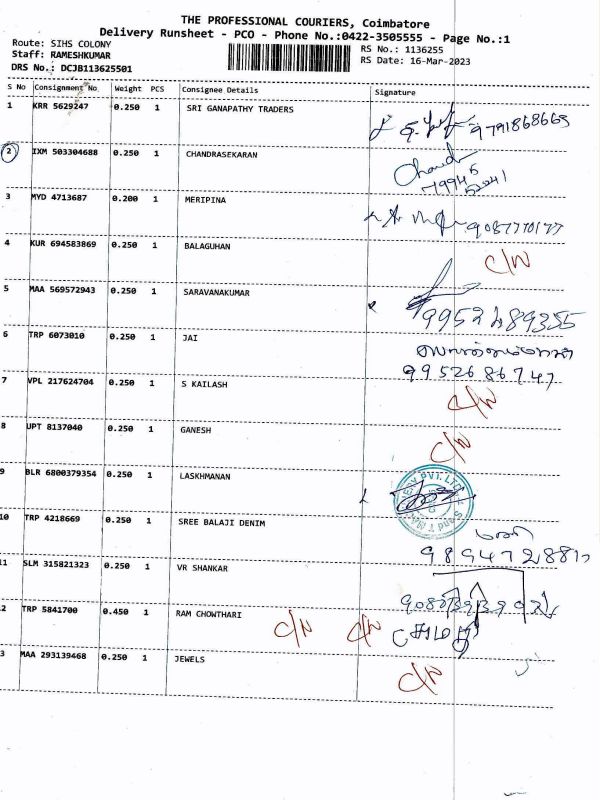 THE PROFESSIONAL COURIERS, Coimbatore
Delivery Runsheet - PCO - Phone No.:0422-3505555 - Page No.:1
Route: SIHS COLONY
Staff: RAMESHKUMAR
DRS No.: DCJB113625501
RS No.: 1136255
RS Date: 16-Mar-2023
S No Consignment No. Weight PCS Consignee Details Signature
1 KRR 5629247 0.250 1 SRI GANAPATHY TRADERS 9791868665
2 IXM 503304688 0.250 1 CHANDRASEKARAN
3 MYD 4713687 0.200 1 MERIPINA 9087770177
4 KUR 694583869 0.250 1 BALAGUHAN C/N
5 MAA 569572943 0.250 1 SARAVANAKUMAR 9952489355
6 TRP 6073010 0.250 1 JAI 9952686747
7 VPL 217624704 0.250 1 S KAILASH C/N
8 UPT 8137040 0.250 1 GANESH C/N
9 BLR 6800379354 0.250 1 LASKHMANAN
10 TRP 4218669 0.250 1 SREE BALAJI DENIM
11 SLM 315821323 0.250 1 VR SHANKAR
2 TRP 5841700 0.450 1 RAM CHOWTHARI C/N C/N
3 MAA 293139468 0.250 1 JEWELS C/N